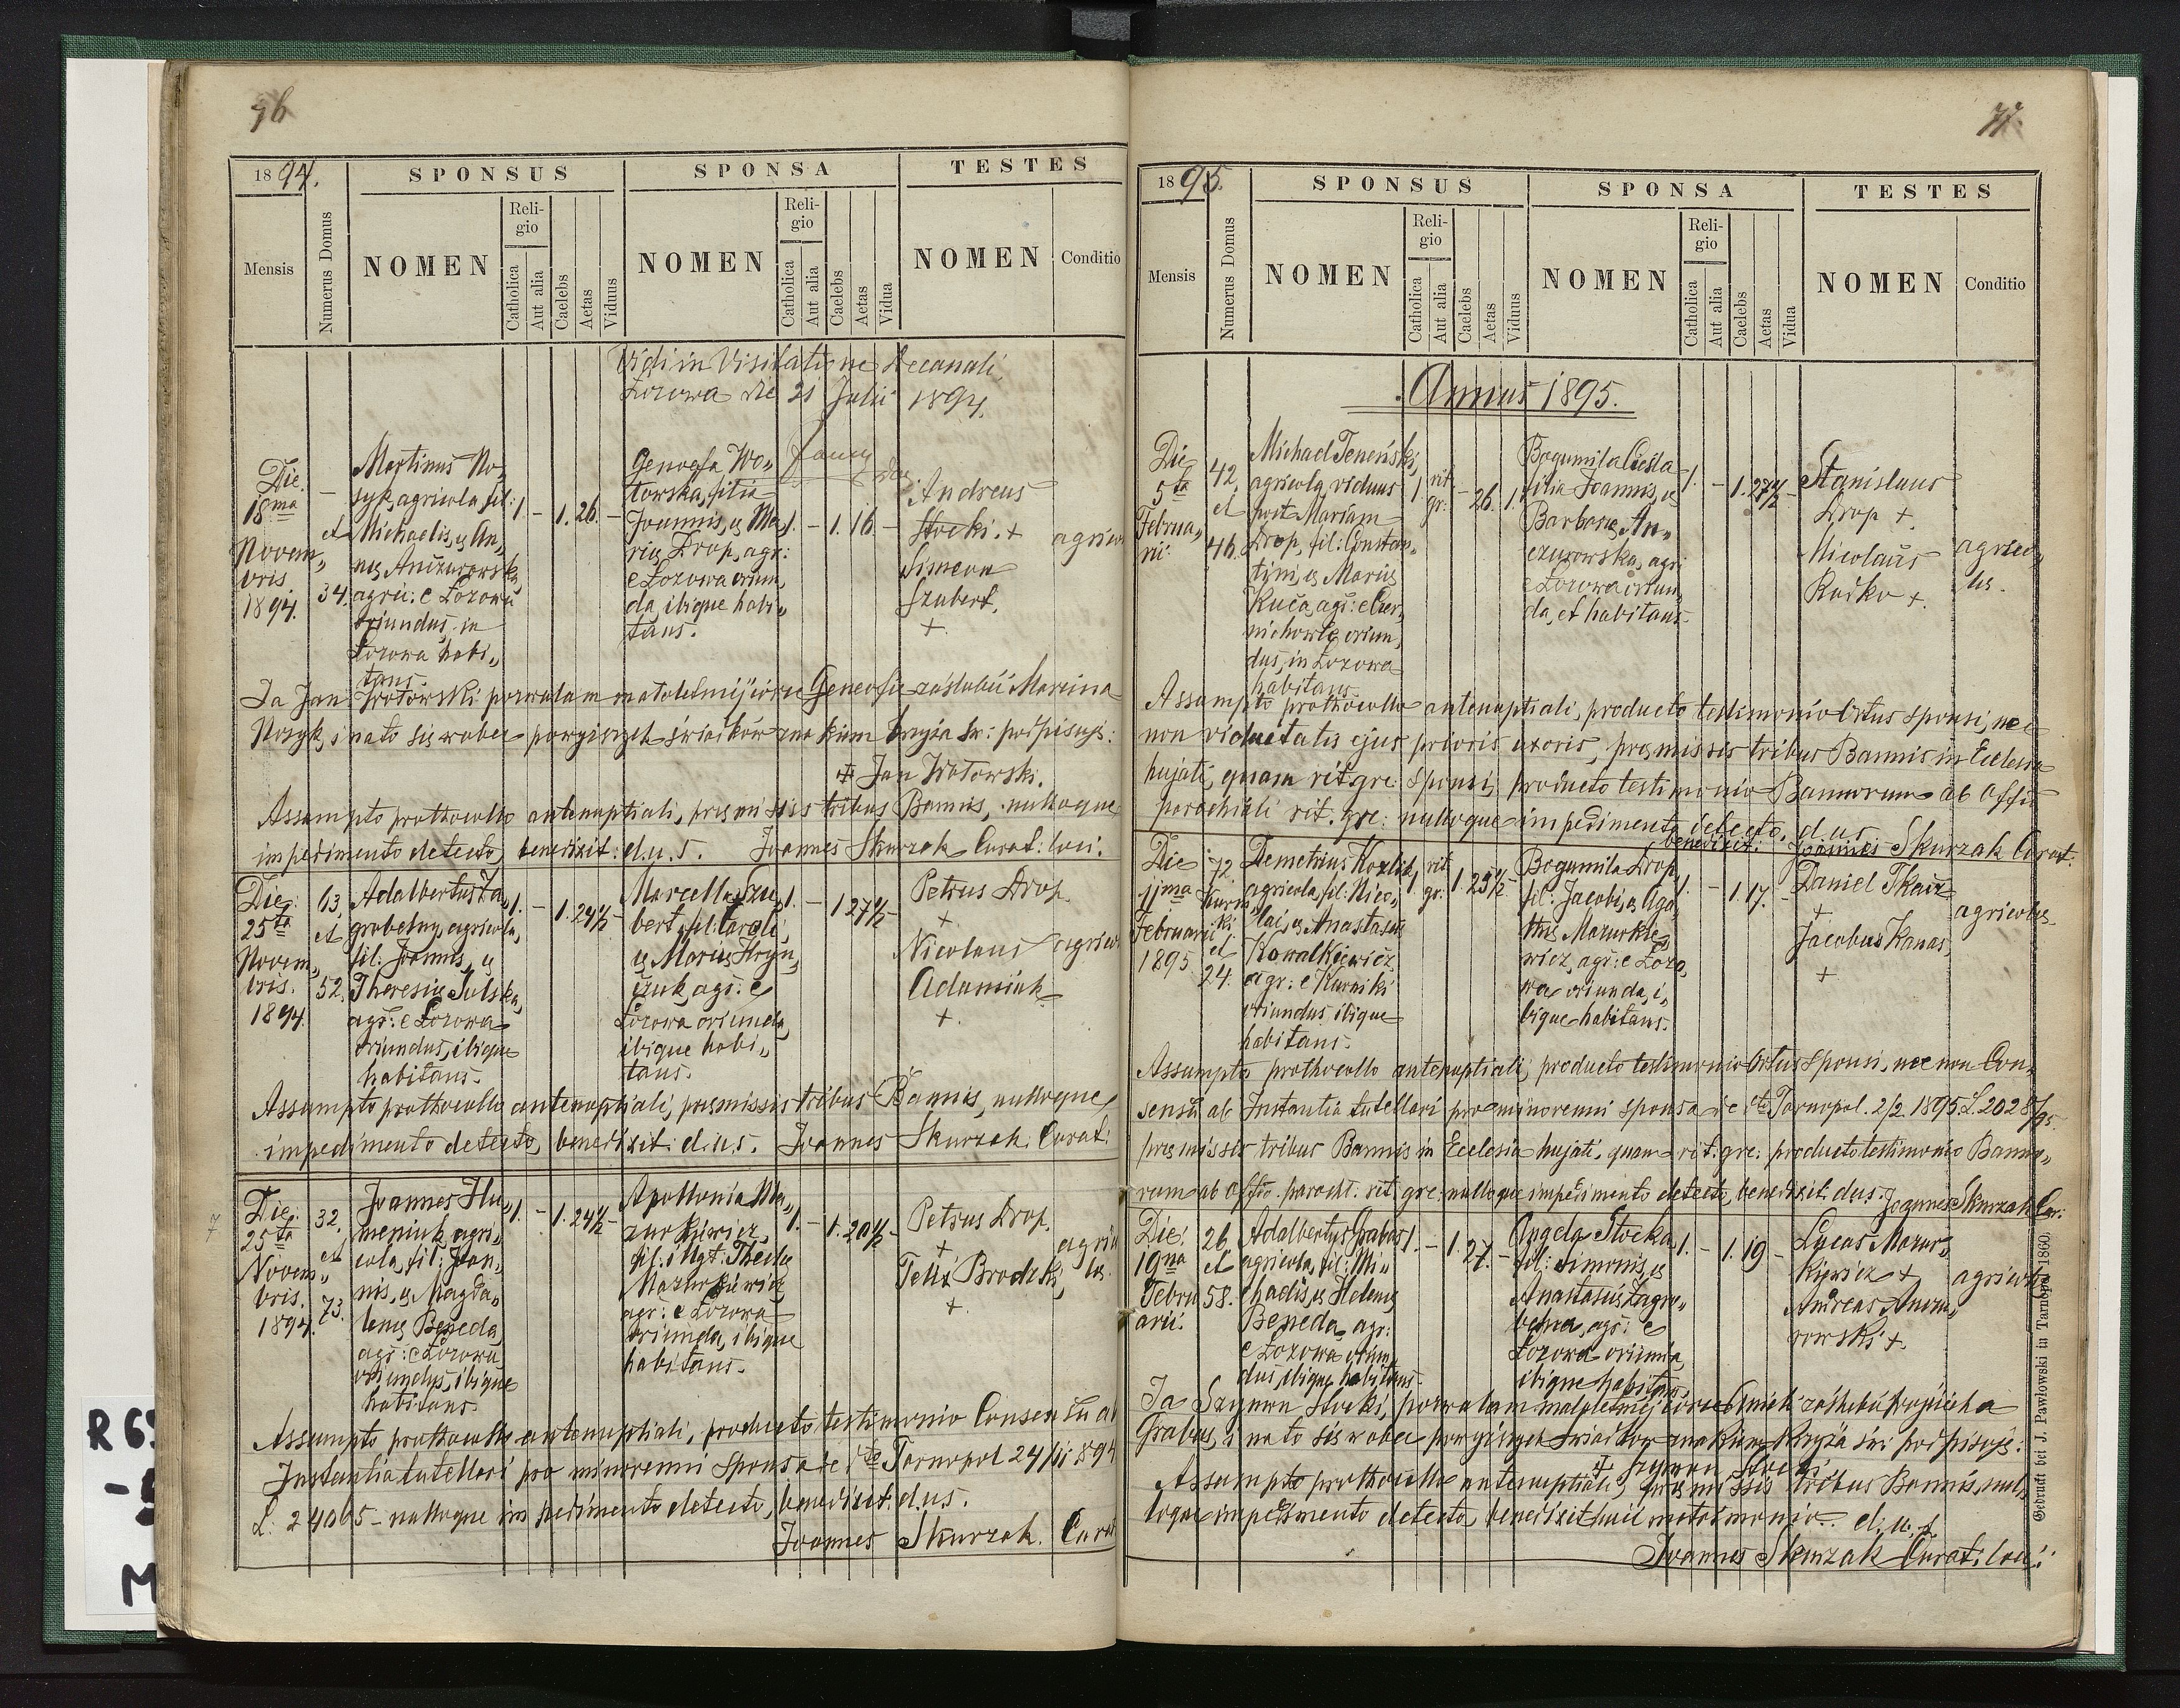 76
1894.
SPONSUS
SPONSA
TESTES
Mensis
Numerus Domus
NOMEN
Reli-
gio
Catholica
Aut alia
Caelebs
Aetas
Viduus
NOMEN
Reli-
gio
Catholica
Aut alia
Caelebs
Aetas
Vidua
NOMEN
Conditio
Vidi in Visitatione Decanali
Łozowa die 21 Julii 1894.
Die
18ma
Novem„
bris
1894.
—
et
34.
Martinus No„
syk, agricola, fil:
Michaelis, et An„
næ
agric: e Łozowa
oriundus, in
Łozowa habi„
tans.
1. - 1. 26. -
Genofa Wo„
towska, filia
Joannis, et Ma„
riæ Drop, agr:
e Łozowa oriun„
da, ibique habi„
tans.
1. - 1. 16. -
Andreas
Stocki. +
Simeon
Szubert.
+
agrico
Ja Jan Wotowski pozwalam małoletniej córce Genofie zaślubić Marcina
Nosyk, i na to się wobec powyższych świadków znakiem krzyża św: podpisuję:
+ Jan Wotowski.
Assumpto prothocollo antenuptiali, præmissis tribus Bannis, nulloque
impedimento detecto, benedixit: d.u.s. Joannes Skurzak Curat: loci.
Die
25ta
Novem„
bris.
1894.
63
et
52.
Adalbertus Za„
grobelny, agricola,
fil: Joannis, et
Theresiæ Sulska,
agr: e Łozowa
oriundus, ibique
habitans.
1. - 1. 24½ -
Marcella Szu„
bert, fil: Caroli,
et Mariæ Hryn„
czuk, agr: e
Łozowa oriunda,
ibique habi„
tans.
1. - 1 27½ -
Petrus Drop
+
Nicolaus
Adamiak
+.
agrico
Assumpto prothocollo antenuptiali, præmissis tribus Bannis, nulloque
impedimento detecto, benedixit: d.u.s. Joannes Skurzak Curat:
Die
25ta
Novem„
bris.
1894.
32.
et
73.
Joannes Hu„
meniuk, agri„
cola, fil: Joan„
nis, et Magda„
lenæ Beneda,
agr: e Łozowa
oriundus, ibique
habitans.
1. - 1. 24½ -
Apollonia Ma„
zurkiewicz,
fil: illgt: Theclæ
Mazurkiewicz,
agr: e Łozowa
oriunda, ibique
habitans.
1. - 1. 20½ -
Petrus Drop.
+
Felix Brodzki,
+.
agrico
læ.
Assumpto prothocollo antenuptiali, producto testimonio Consensu ab
Instantia tutellari pro minorenni sponsa de dto Tarnopol 24/11 894
L: 24065 - nulloque impedimento detecto, benedixit: d.u.s.
Joannes Skurzak. Curat
77.
1895.
SPONSUS
SPONSA
TESTES
Mensis
Numerus Domus
NOMEN
Reli-
gio
Catholica
Aut alia
Caelebs
Aetas
Viduus
NOMEN
Reli-
gio
Catholica
Aut alia
Caelebs
Aetas
Vidua
NOMEN
Conditio
Annus 1895.
Die
5ta
Februa„
rii.
42.
et
46.
Michael Teneński,
agricola, viduus
post Mariam
Drop, fil: Constan„
tini, et Mariæ
Kuca, agr: e Czer„
nichowce oriun„
dus, in Łozowa
habitans.
1. rit. gr: - 26. 1.
Bogumila Cieśla
filia Joannis, et
Barbaræ An„
czurowska, agr:
e Łozowa oriun„
da, et habitans.
1. - 1. 27½ -
Stanislaus
Drop +.
Nicolaus
Raćko +.
agrico„
læ.
Assumpto prothocollo antenuptiali, producto testimonio Ortus sponsi, nec
non viduitatis ejus prioris uxoris, præmissis tribus Bannis in Ecclesia
hujati, quam rit. gre: sponsi, producto testimonio Bannorum ab Offio
parochiali rit. gre: nulloque impedimento detecto, d.u.s.
benedixit: Joannes Skurzak Curat.
Die
11ma
Februarii
1895
72.
Kurni
ki
et
24.
Demetrius Kozlik,
agricola, fil: Nico„
lai, et Anastasiæ
Kowalkiewicz
agr: e Kurniki
oriundus ibique
habitans.
1. rit. gr: 1. 25½ -
Bogumila Drop
fil: Jacobi, et Aga„
thæ Mazurkie„
wicz, agr: e Łozo„
wa oriunda, i„
bique habitans.
1. - 1. 17. -
Daniel Tkacz
+
Jacobus Kanas,
+
agricolæ
Assumpto prothocollo antenuptiali, producto testimonio Ortus sponsi, nec non Con„
sensu ab Instantia tutellari pro minorenni sponsa de dto Tarnopol. 2/2 1895 L. 2028/95.
præmissis tribus Bannis in Ecclesia hujati, quam rit. gre: producto testimonio Banno„
rum ab Offio. paroch. rit gre: nulloque impedimento detecto, benedixit: dus. Joannes Skurzak Cur:
Die:
19na
Febru
arii.
26.
et
58.
Adalbertus Grabas
agricola, fil: Mi„
chaelis, et Helenæ
Beneda, agr:
e Łozowa oriun„
dus, ibique habitans.
1. - 1. 27. -
Angela Stocka
fil: Simonis, et
Anastasiæ Zagro„
belna, agr: e
Łozowa oriunda,
ibique habitans.
1. - 1. 19 -
Lucas Mazur„
kiewicz +
Andreas
rowski +.
agricolæ
Ja Szymon Stocki, pozwalam małoletniej córce Anieli zaślubić Wojciecha
Grabas, i na to się wobec powyższych świadków znakiem krzyża św: podpisuję:
+ Szymon Stocki
Assumpto prothocollo antenuptiali, præmissis tribus Bannis, nul„
loque impedimento detecto, benedixit huic matrimonio. d.u.s.
Joannes Skurzak Curat: loci:
Gedruckt bei J. Pawłowski in Tarnopol 1860.
R 6
M